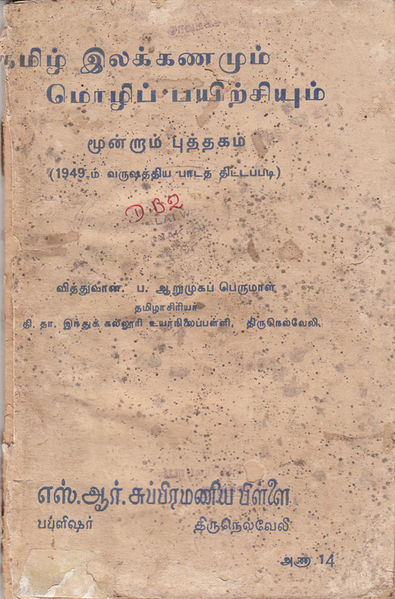 தமிழ் இலக்கணமும்
மொழிப் பயிற்சியும்
மூன்றாம் புத்தகம்
(1949 ம் வருஷத்திய பாடத் திட்டப்படி)
DB2
வித்துவான். ப. ஆறுமுகப் பெருமாள்
தமிழாசிரியர்
தி. தா. இந்துக் கல்லூரி உயர்நிலைப்பள்ளி, திருநெல்வேலி.
எஸ்.ஆர்.சுப்பிரமணிய பிள்ளை
பப்ளிஷர் திருநெல்வேலி
அணா 14